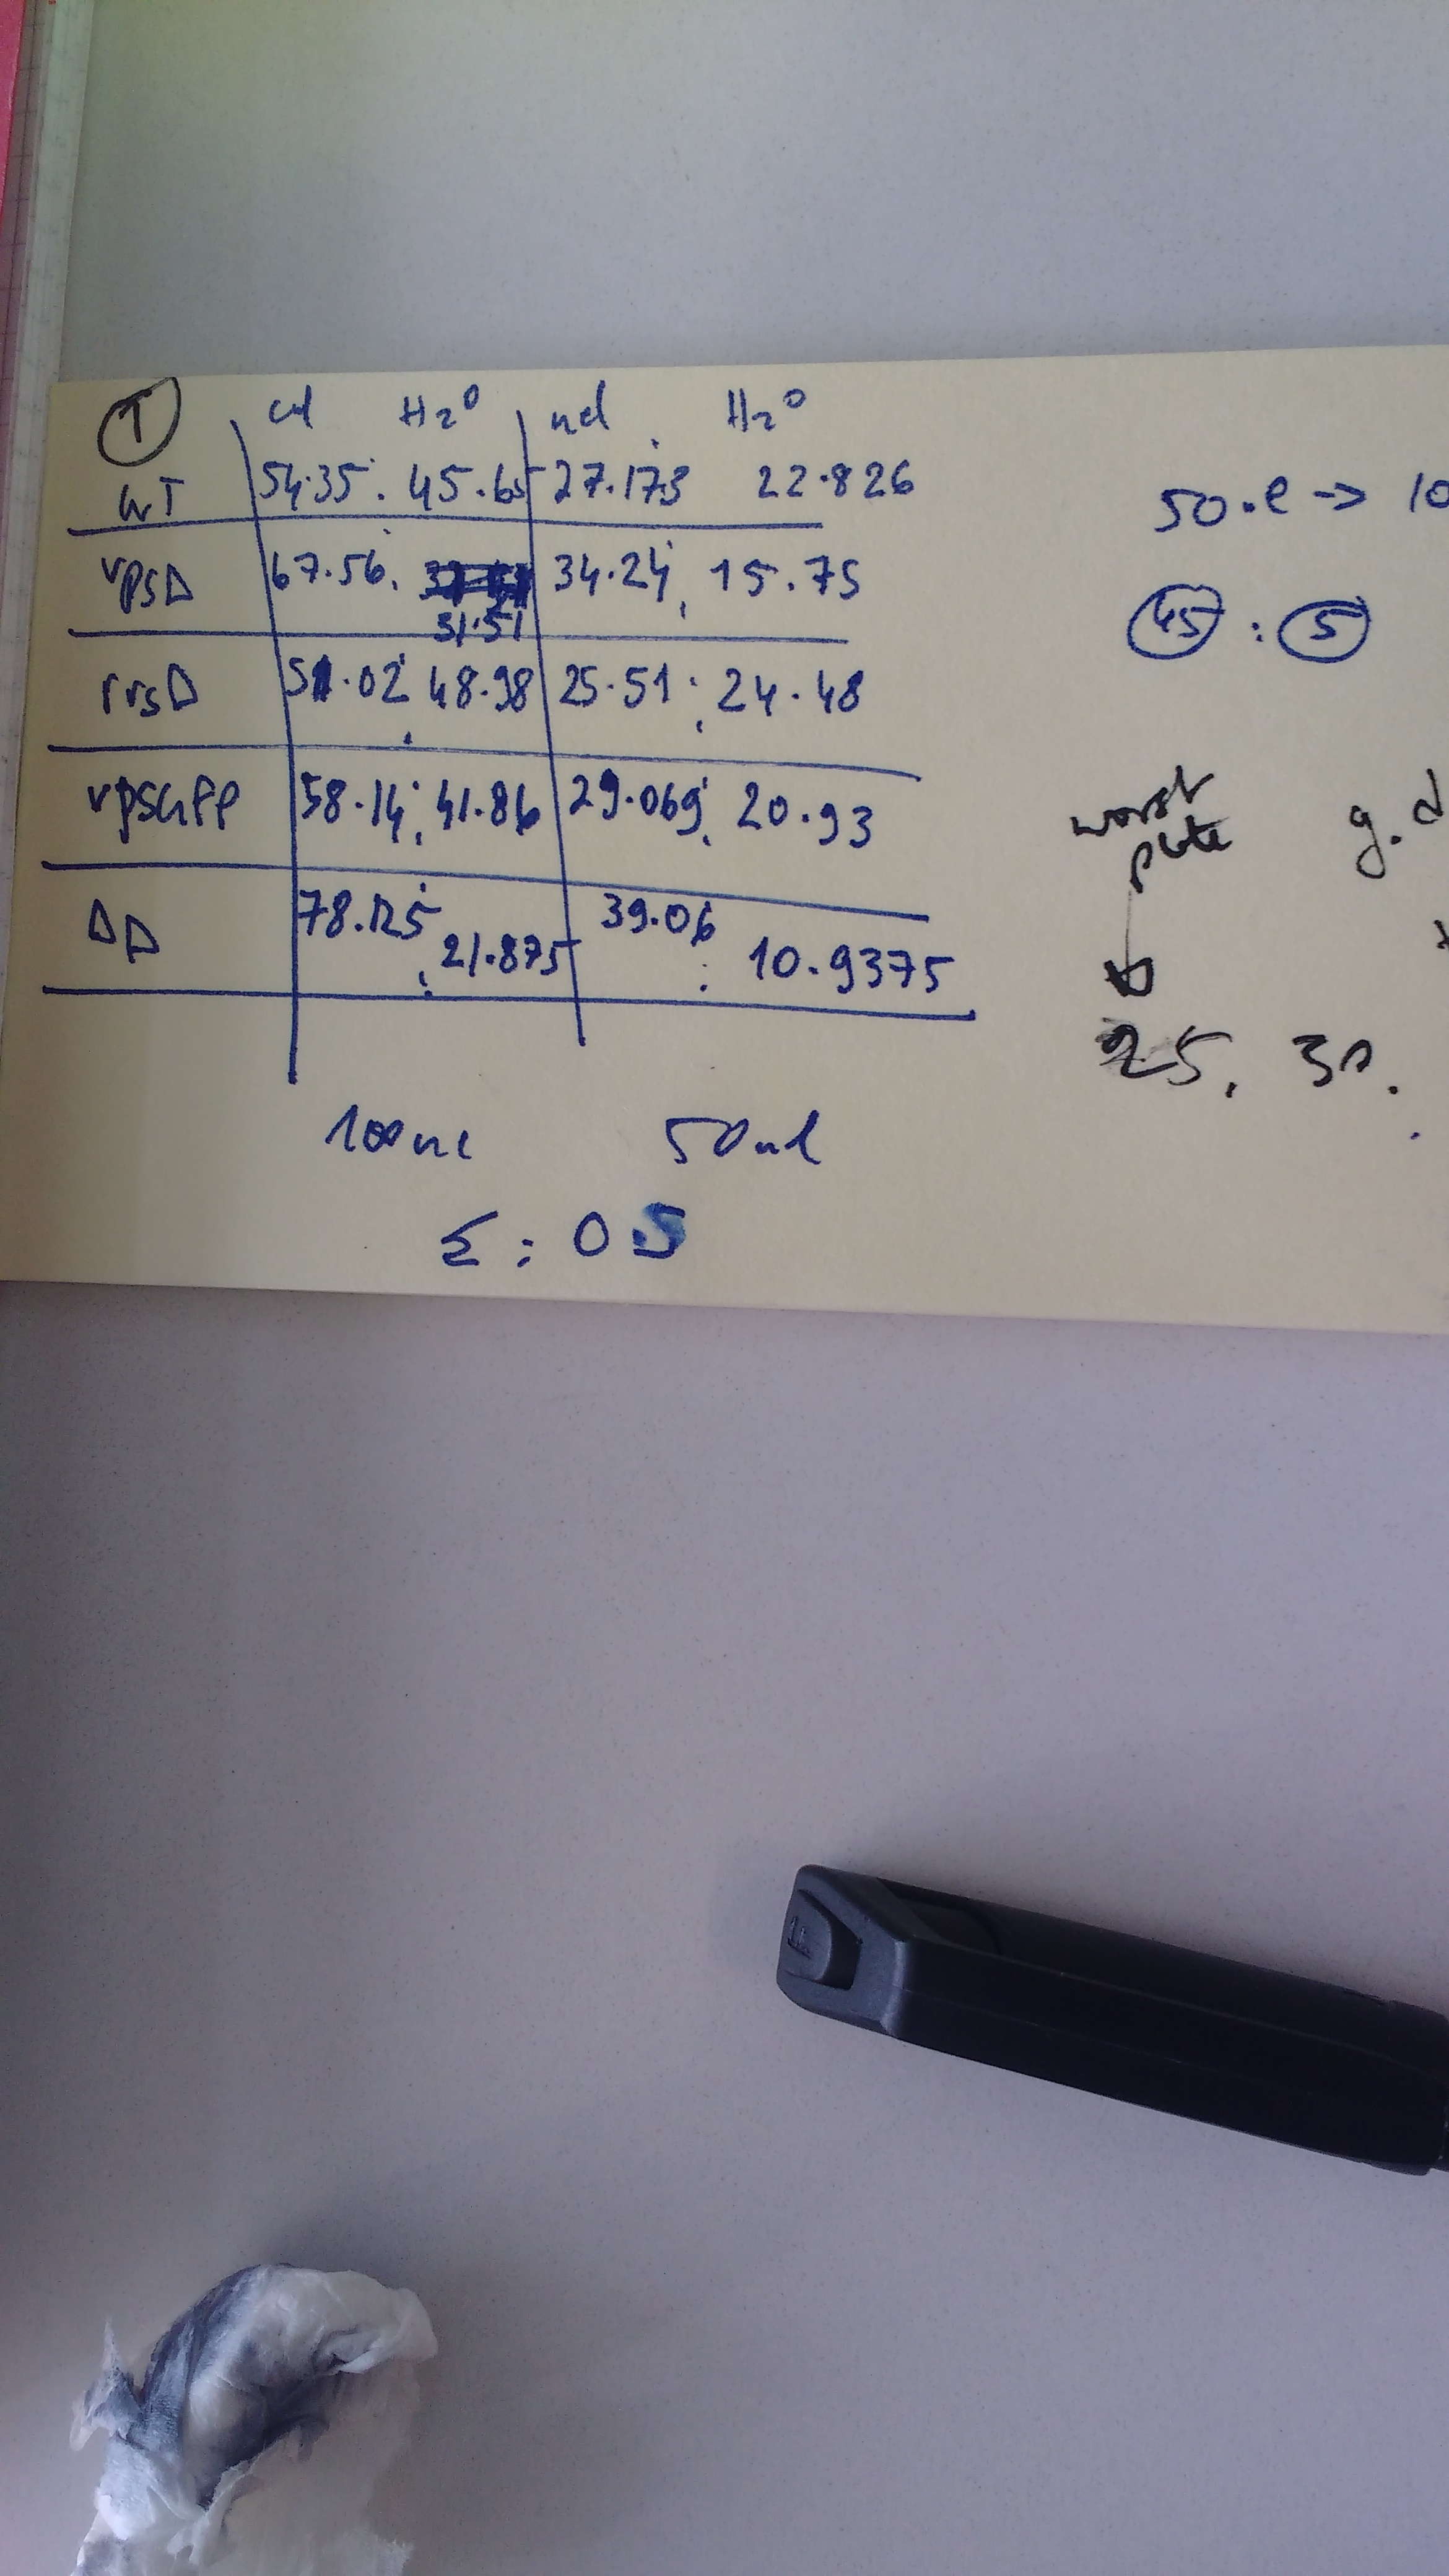 T cul H2O ucl H2O
WT 54.35 : 45.65 27.173 : 22.826
vpsΔ 67.56 : 31.51 34.24 : 15.75
rrsΔ 51.02 : 48.98 25.51 : 24.48
58.14 : 41.86 29.069 : 20.93
ΔΔ 78.125 : 21.875 39.06 : 10.9375
100ul 50ul
Σ : 05
→ 10
45 : 5
worst
plate
25, 30.